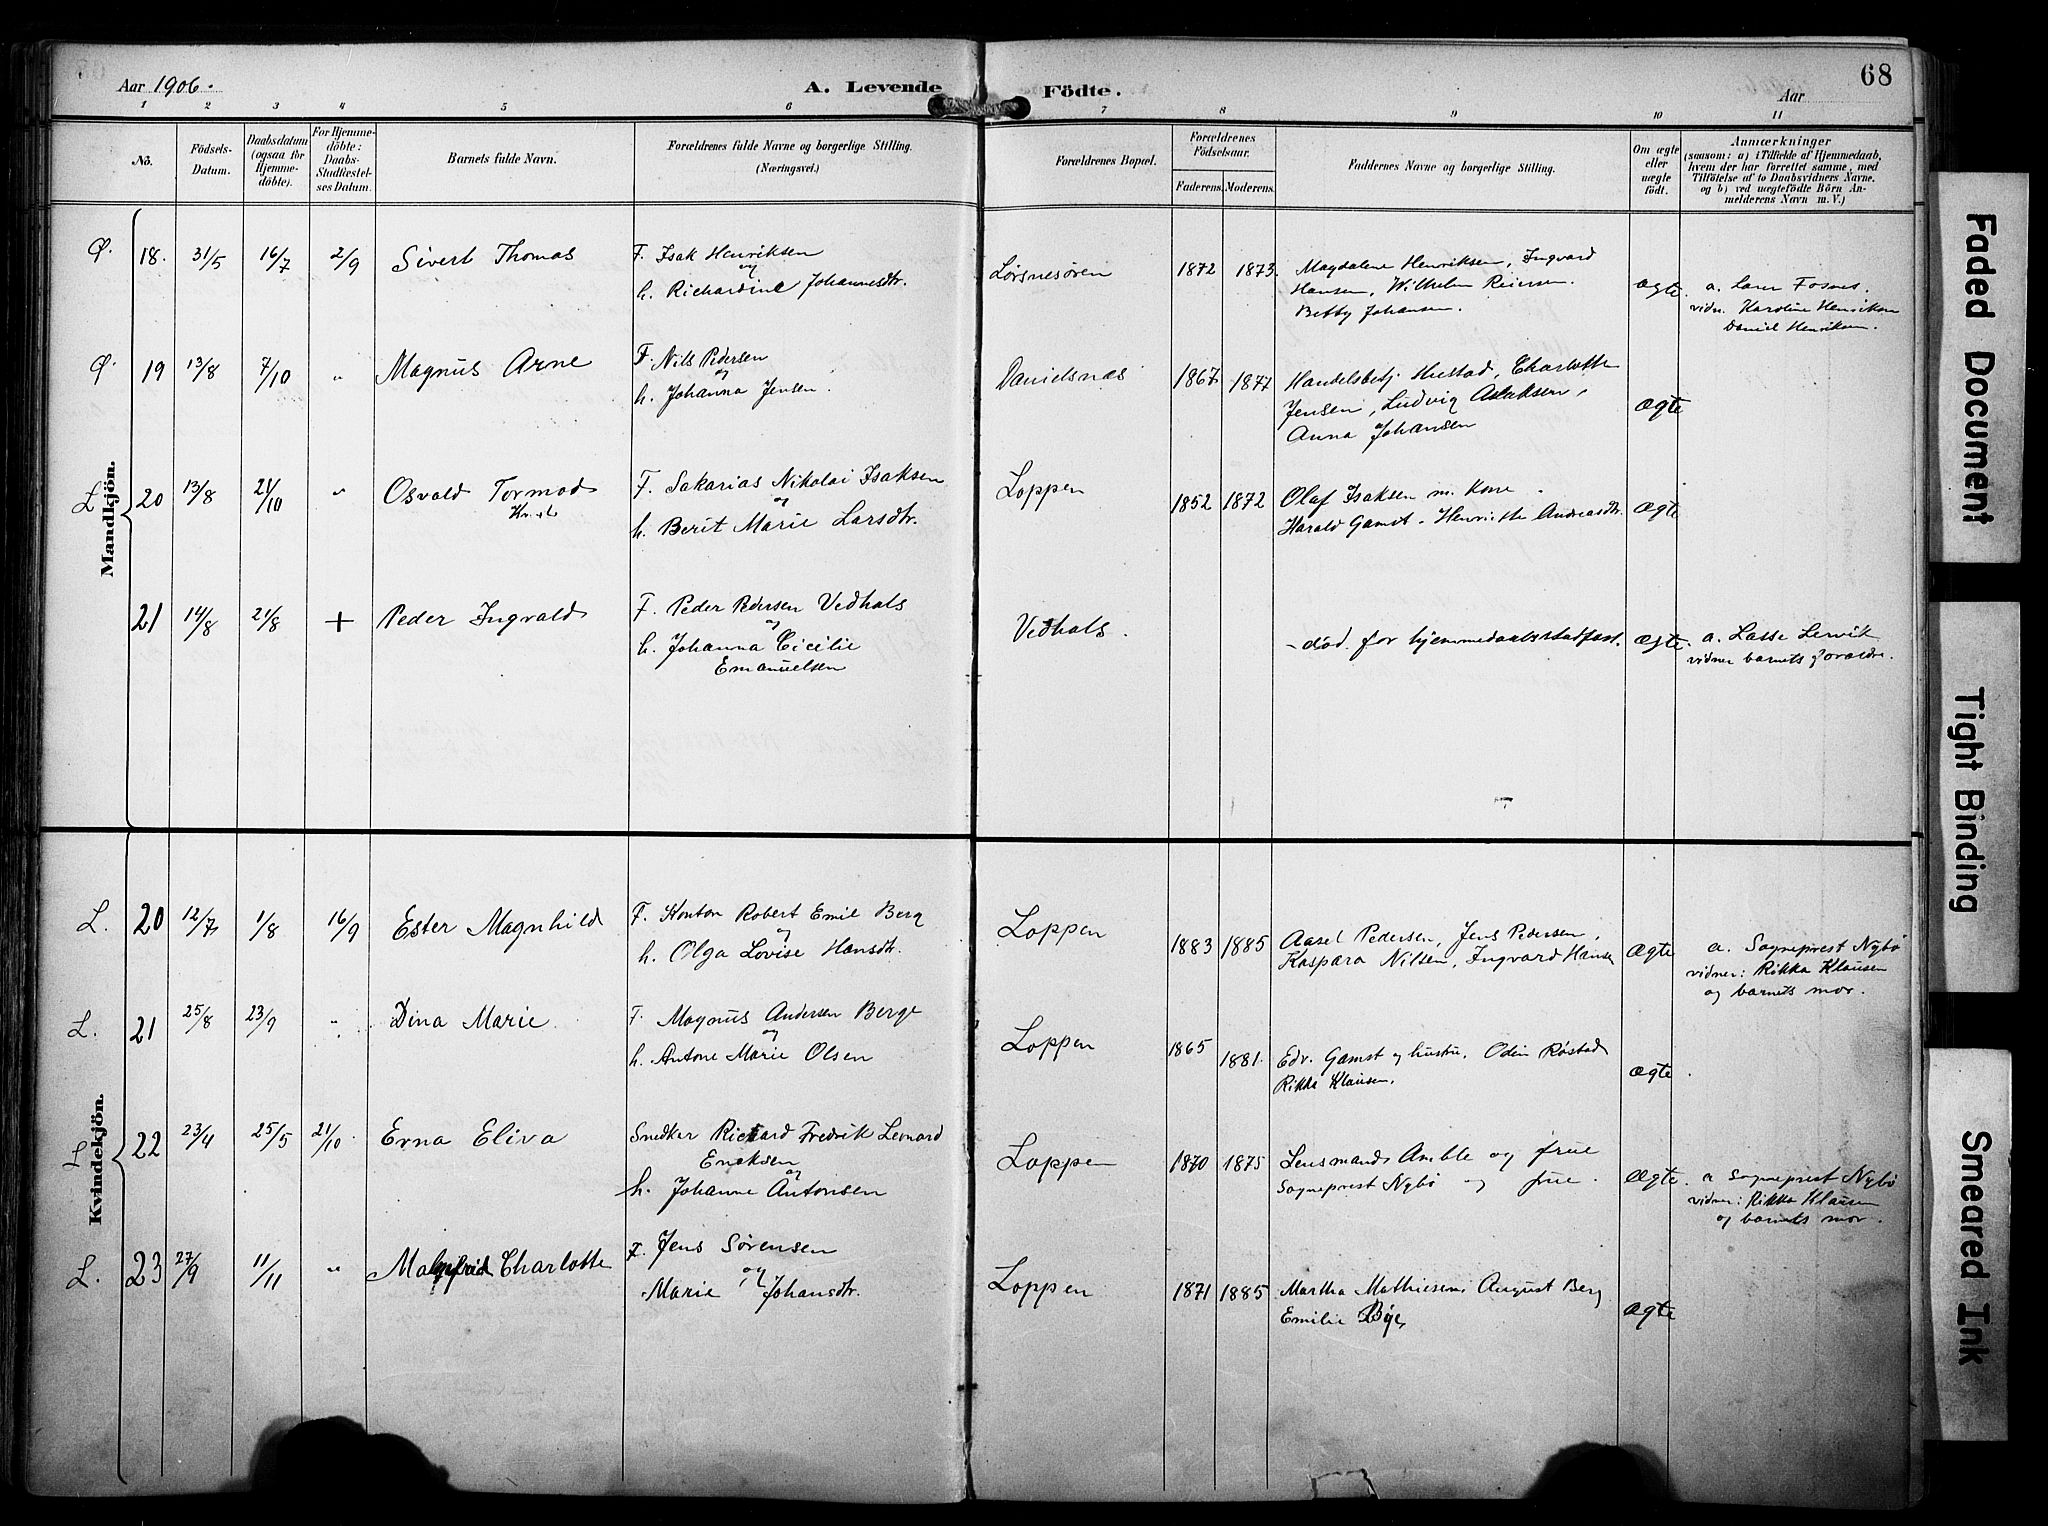 Aar 1906.
A. Levende Födte.
Aar
68
1 2 3 4 5 6 7 8 9 10 11
No.
Födsels-
Datum.
Daabsdatum
(ogsaa for
Hjemme-
döbte).
For Hjemme-
döbte:
Daabs-
Stadfæstel-
ses Datum.
Barnets fulde Navn.
Forældrenes fulde Navne og borgerlige Stilling.
(Næringsvei.)
Forældrenes Bopæl.
Forældrenes
Födselsaar.
Faderens. Moderens.
Faddernes Navne og borgerlige Stilling.
Om ægte
eller
uægte
födt.
Anmærkninger
(saasom: a) i Tilfælde af Hjemmedaab,
hvem der har forrettet samme, med
Tilföielse af to Daabsvidners Navne,
og b) ved uægtefödte Börn An-
melderens Navn m. V.)
Mandkjön.
Ø. 18. 31/5 16/7 2/9 Sivert Thomas
F. Isak Henriksen
og
h. Richardine Johannesdtr.
1872 1873.
Magdalene Henriksen, Ingvard
Hansen, Wilhelm Reiersen.
Betty Johansen.
ægte.
a. Fosnes.
vidn. Karoline Henriksen
Daniel Henriksen.
Ø. 19 13/8 7/10 " Magnus Arne
F. Nils Pedersen
og
h. Johanna Jensen.
Danielsnas
1867 1877
Handelsbetj. Hustad, Charlotte
Jensen, Ludvig Aslaksen,
Anna Johansen
ægte
L 20 13/8 21/10 " Osvald Tormod
F. Sakarias Nikolai Isaksen
og
h. Berit Marie Larsdtr.
Loppen
1852 1872
Olaf Isaksen m. Kone.
Harald Gamst. Henriette Andreasdtr.
ægte
21 14/8 21/8 + Peder Ingvald
F. Peder Pedersen Vedhals
og
h. Johanna Cicilie
Emanuelsen
Vedhals.
- død for hjemmedaabsstadfæst.
ægte.
a. Lasse Lervik
vidner barnets forældre.
Kvindekjön.
L. 20 12/7 1/8 16/9 Ester Magnhild
F. Robert Emil Berg
og
h. Olga Lovise Hansdtr.
Loppen
1883 1885
Aasel Pedersen, Jens Pedersen,
Kaspara Nilsen, Ingvard Hansen
ægte
a. Sogneprest Nybø
vidner: Rikka Klausen
og barnets mor.
L. 21 25/8 23/9 " Dina Marie
F. Magnus Andersen Berge
og
h. Antone Marie Olsen
Loppen
1865 1881.
Edv. Gamst og hustru. Odin Røstad
Rikka Klausen.
ægte
L 22 23/4 25/5 21/10 Erna Eliva
Snedker Richard Fredrik Leonard
Ericksen
og
h. Johanne Antonsen
Loppen
1870 1875
Lensmand Amble og frue
Sogneprest Nybø og frue.
ægte.
a Sogneprest Nybø
vidner: Rikka Klausen
og barnets mor.
L. 23 27/9 11/11 " Charlotte
F. Jens Sørensen
og
Marie Johansdtr.
Loppen
1871 1885
Martha Mathiesen, August Berg
Emilie Bye,
ægte
Faded Document
Tight Binding
Smeared Ink